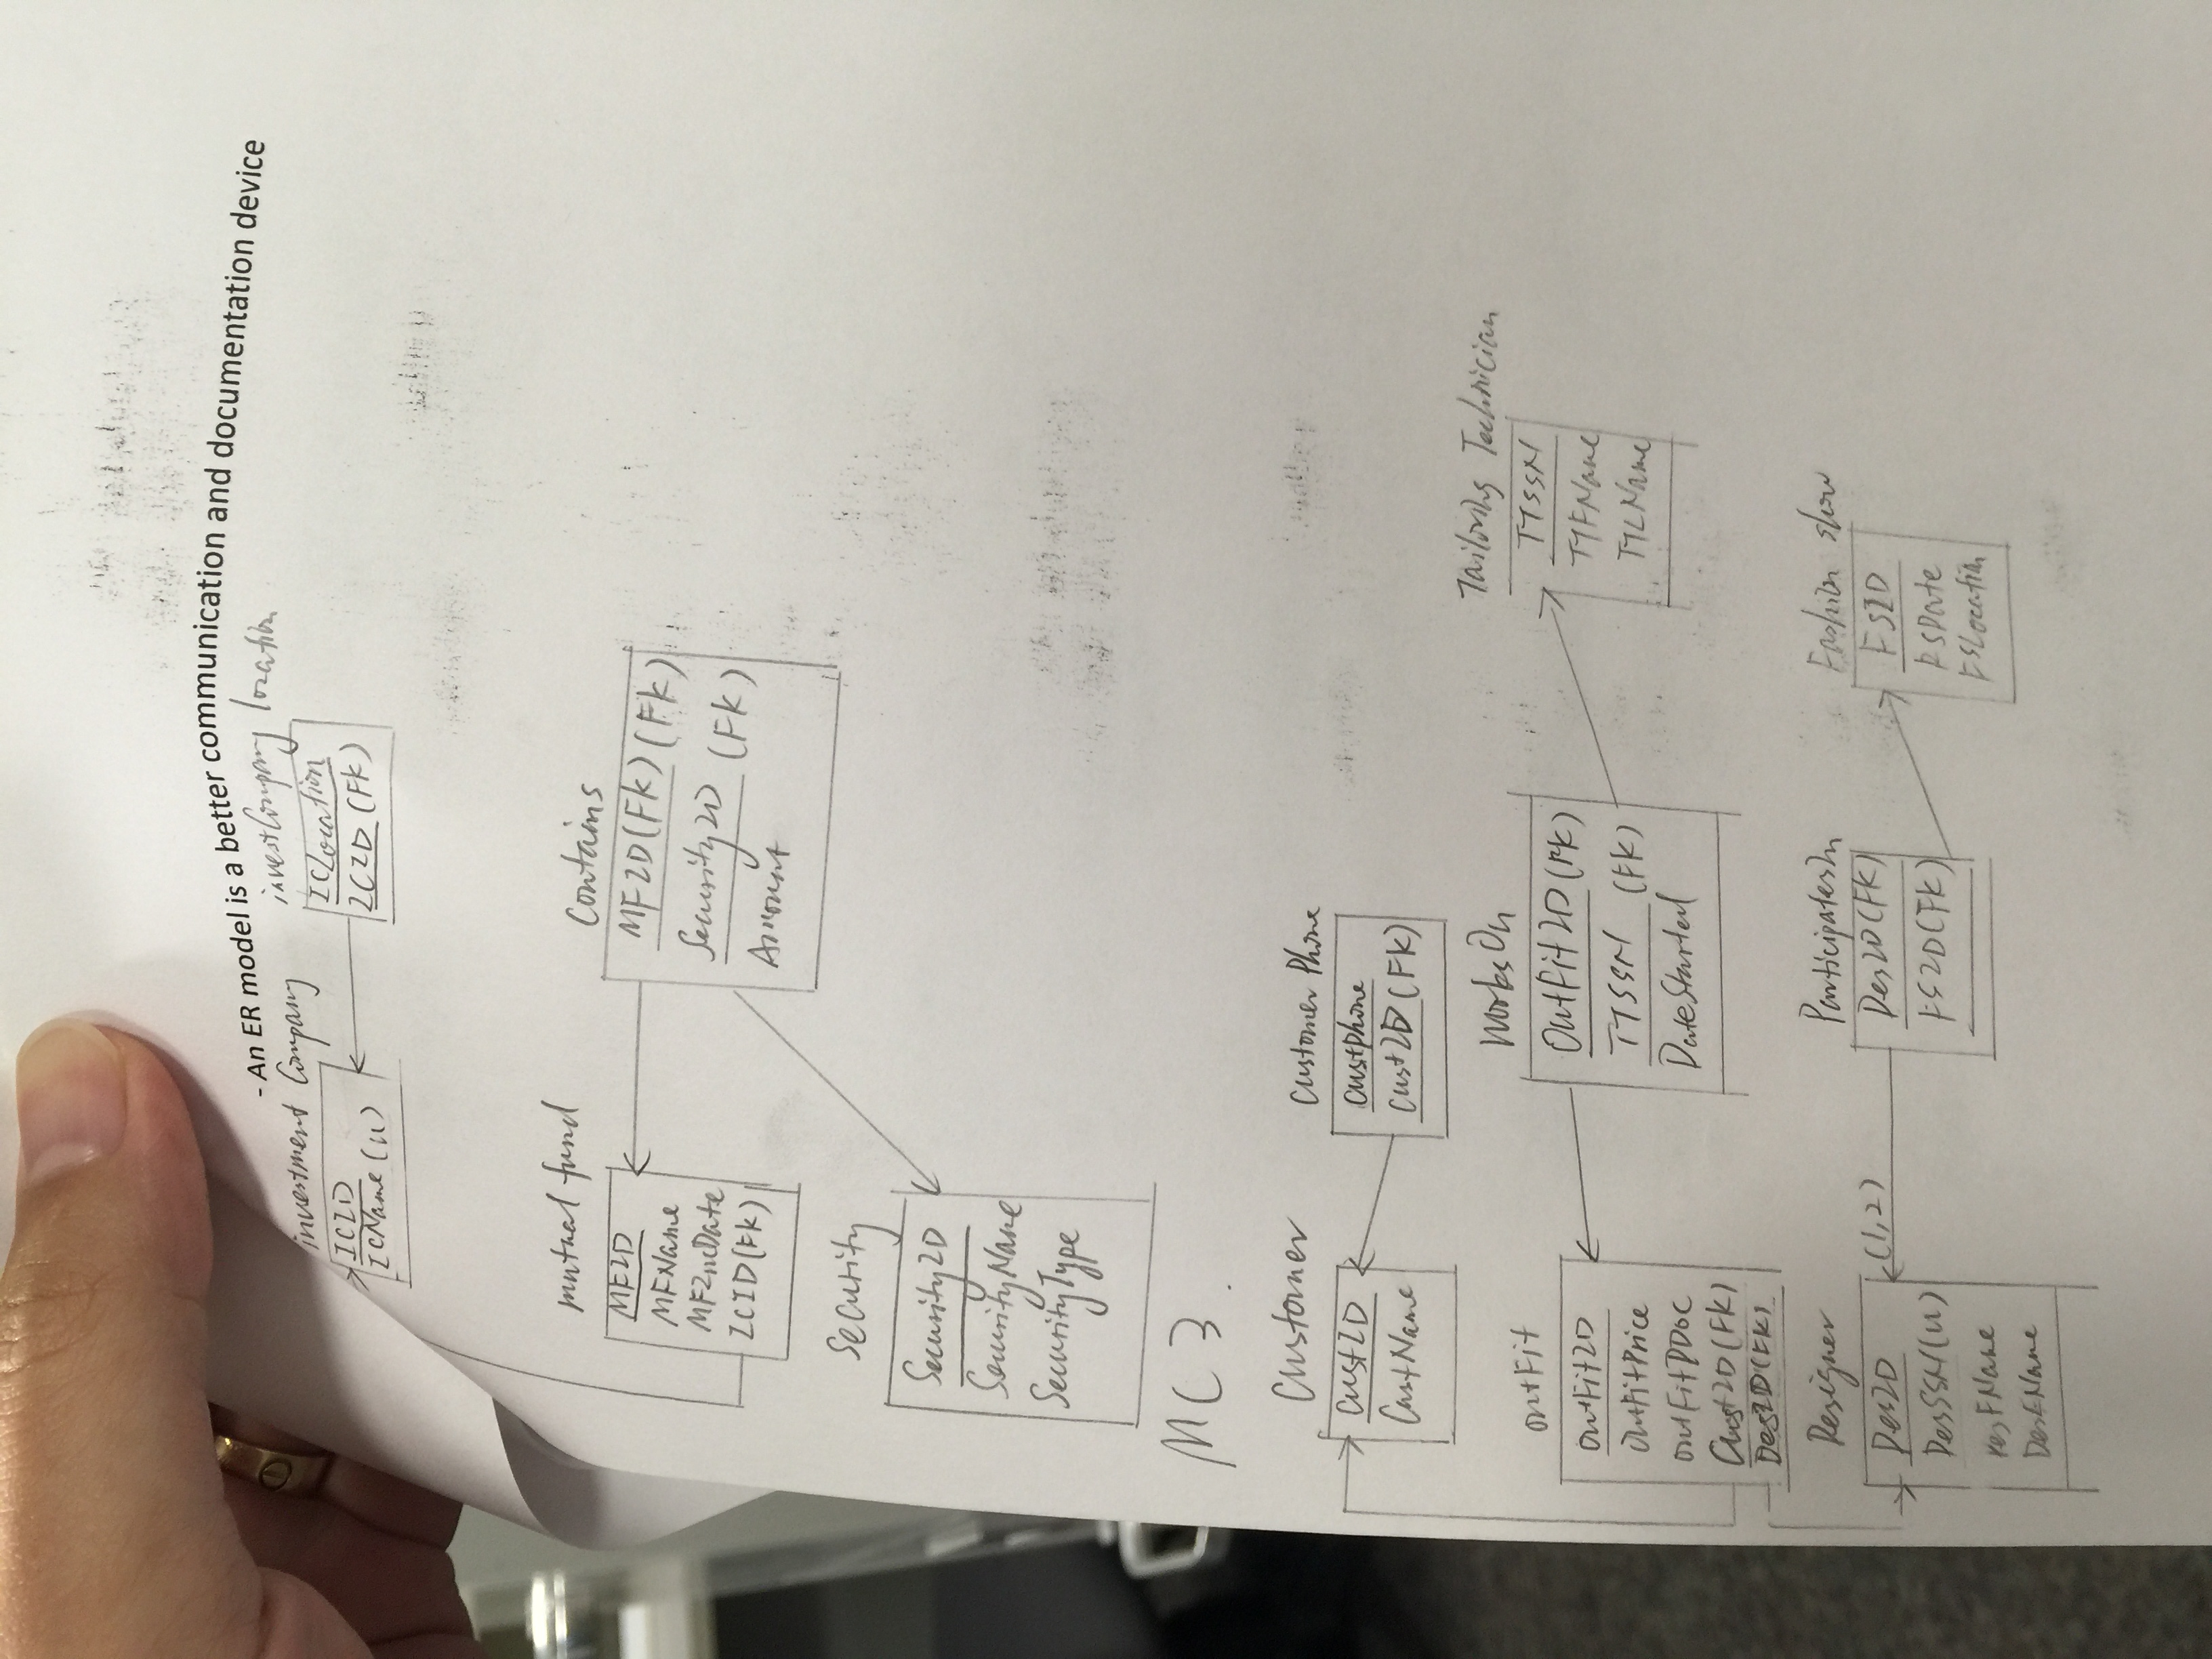 - An ER model is a better communication and documentation device
investment Company
investCompany location
ICID
ICName (U)
ICLocation
ICID (FK)
mutual fund
MFID
MFName
MFIncDate
ICID (FK)
Contains
MFID (FK) (FK)
SecurityID (FK)
Amount
Security
SecurityID
SecurityName
SecurityType
MC3.
Customer
CustID
CustName
Customer Phone
custPhone
CustID (FK)
outFit
outFitID
OutFitPrice
outFitPDoC
CustID (FK)
DesID (FK)
WorksOn
OutFitID (FK)
TTSSN (FK)
DateStarted
Tailoring Technician
TTSSN
TTFName
TTLName
Designer
DesID
DesSSN (U)
DesFName
(1,2)
ParticipatesIn
DesID (FK)
FSID (FK)
Fashion show
FSID
FSLocation